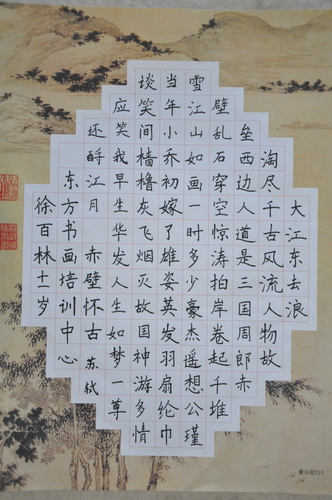 大江东去浪
淘尽千古风流人物故
垒西边人道是三国周郎赤
壁乱石穿空惊涛拍岸卷起千堆
雪江山如画一时多少豪杰遥想公瑾
当年小乔初嫁了雄姿英发羽扇纶巾
谈笑间樯橹灰飞烟灭故国神游多情
应笑我早生华发人生如梦一尊
还酹江月 赤壁怀古 苏轼
东方书画培训中心
徐百林十一岁